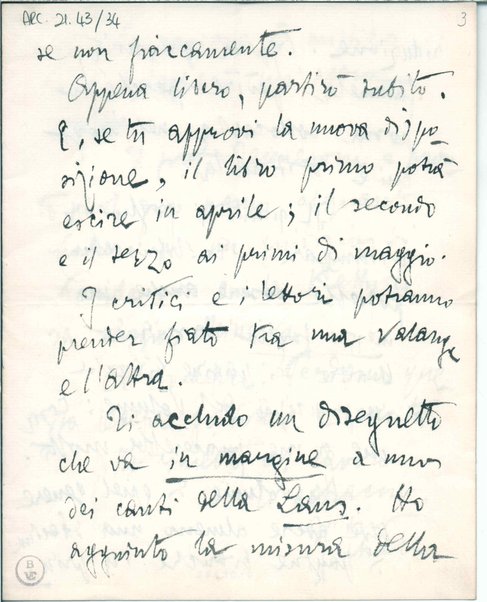 ARC. 21.43/34
3
se non fiaccamente.
Appena libero, partirò subito.
E, se tu approvi la nuova dispo
sizione, il libro primo potrà
escire in aprile; il secondo
e il terzo ai primi di maggio.
I critici e i lettori potranno
prender fiato tra una valanga
e l'altra.
Ti accludo un disegnetto
che va in margine a uno
dei canti della Laus. Ho
aggiunto la misura della